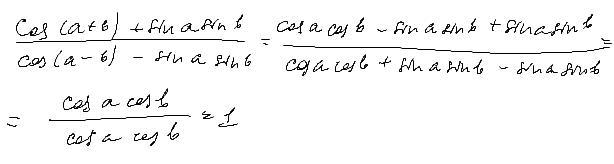 \frac{\cos(a+b) + \sin a \sin b}{\cos(a-b) - \sin a \sin b} = \frac{\cos a \cos b - \sin a \sin b + \sin a \sin b}{\cos a \cos b + \sin a \sin b - \sin a \sin b} =
= \frac{\cos a \cos b}{\cos a \cos b} = 1